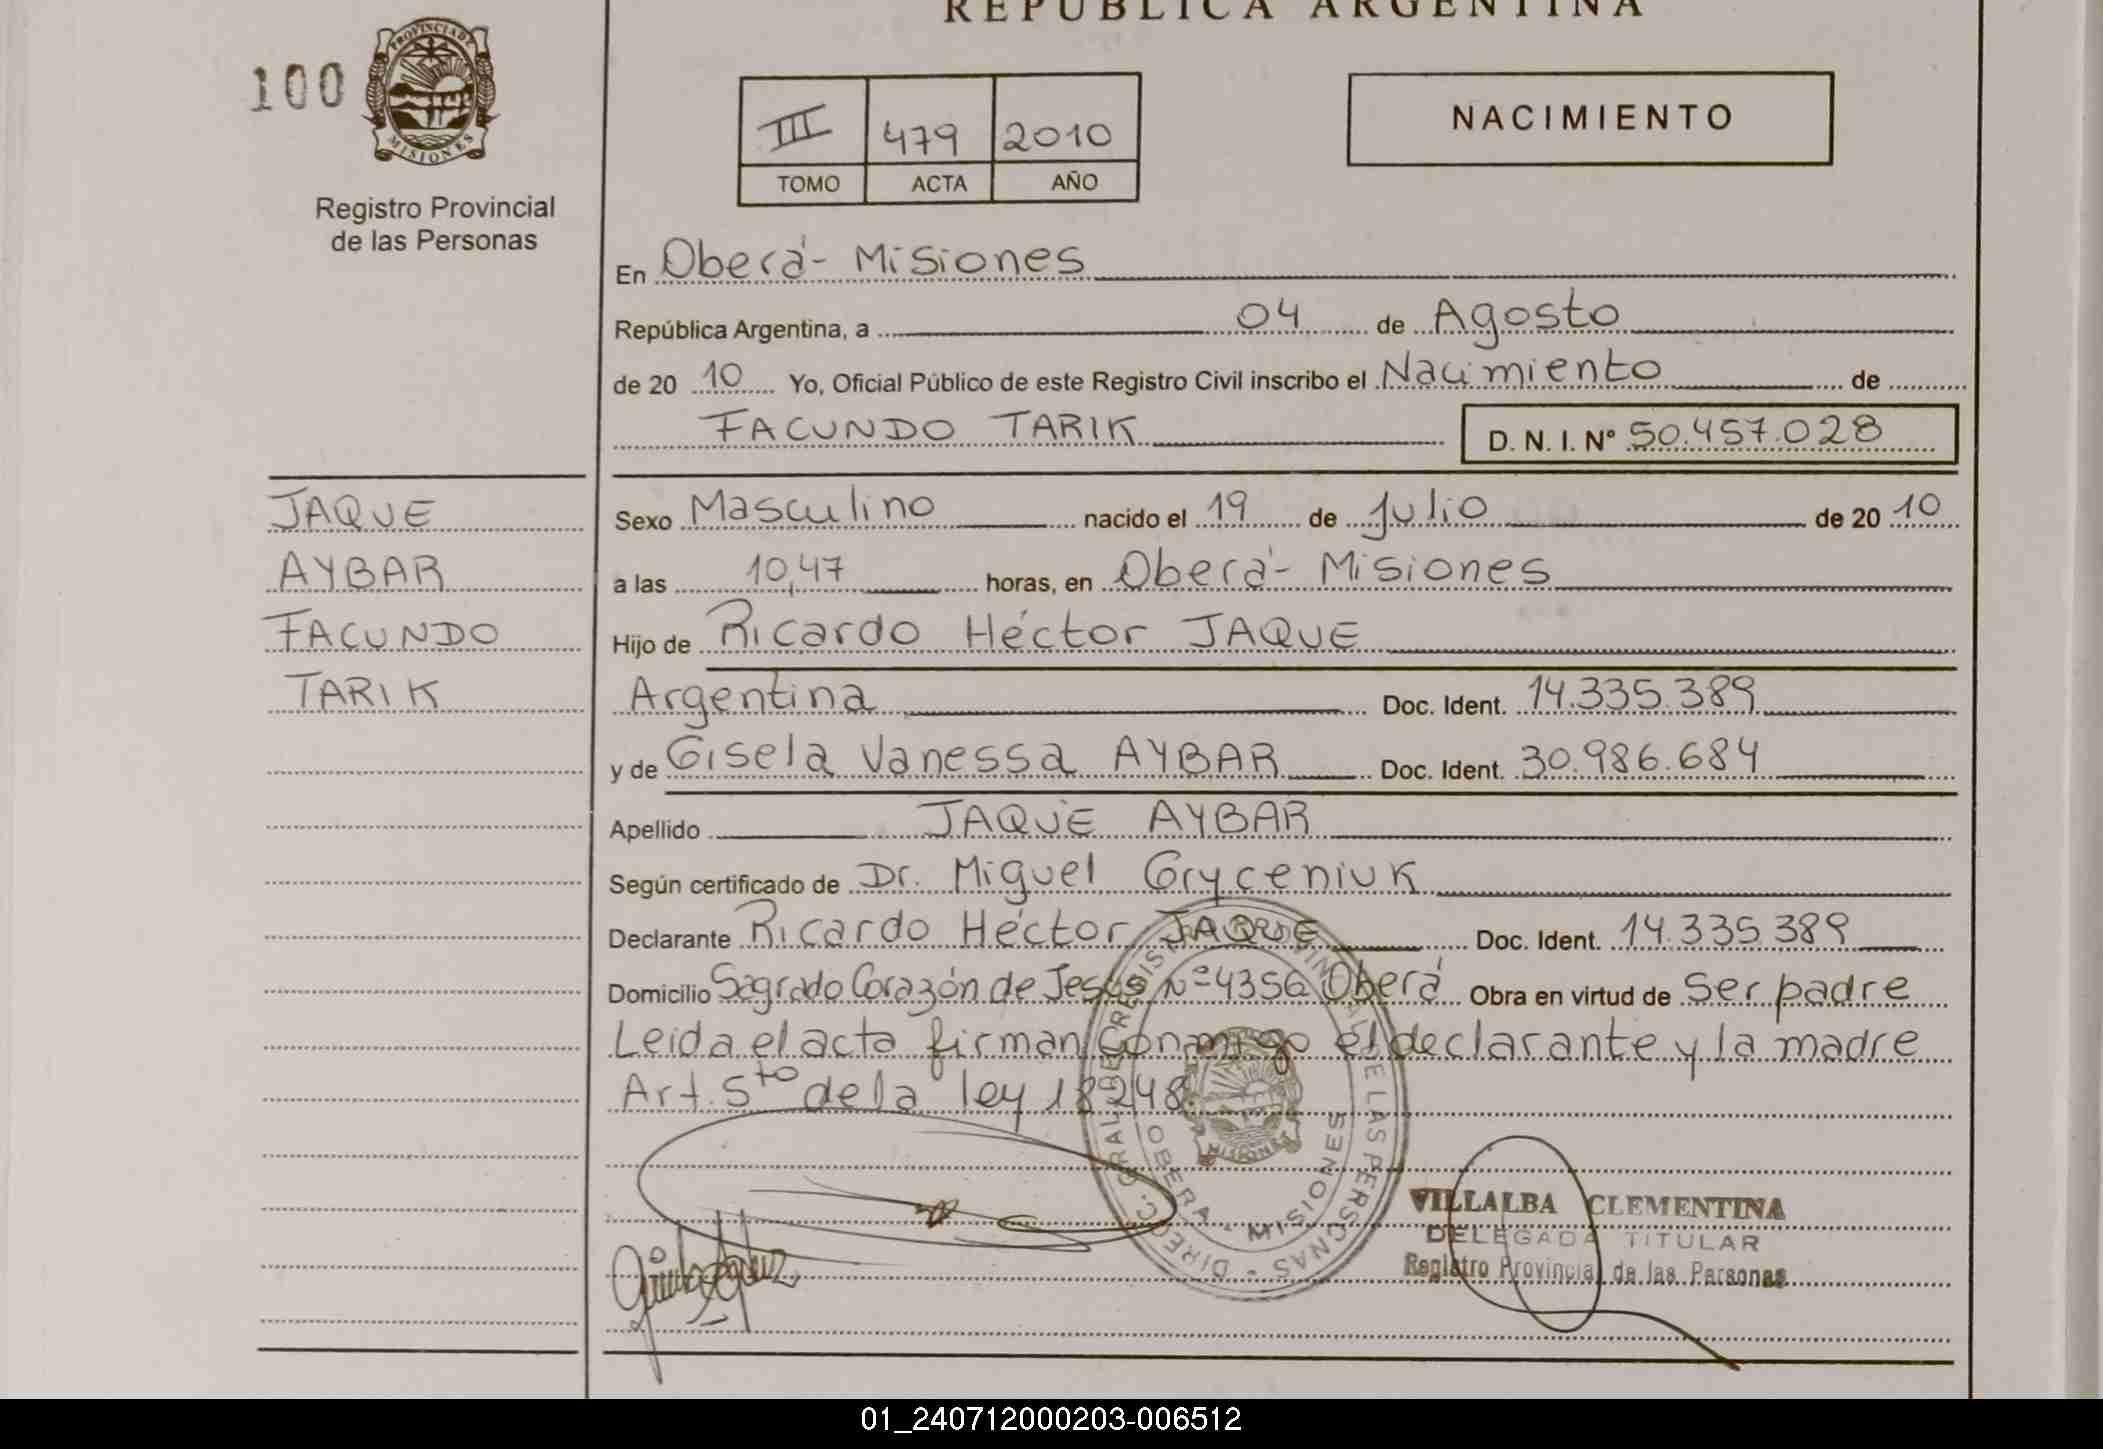 REPÚBLICA ARGENTINA
100
PROVINCIA DE
MISIONES
Registro Provincial
de las Personas
III 479 2010
TOMO ACTA AÑO
NACIMIENTO
En Oberá - Misiones
República Argentina, a 04 de Agosto
de 20 10 Yo, Oficial Público de este Registro Civil inscribo el Nacimiento de
FACUNDO TARIK D. N. I. Nº 50.457.028
JAQUE
AYBAR
FACUNDO
TARIK
Sexo Masculino nacido el 19 de Julio de 20 10
a las 10,47 horas, en Oberá - Misiones
Hijo de Ricardo Héctor JAQUE
Argentina Doc. Ident. 14.335.389
y de Gisela Vanessa AYBAR Doc. Ident. 30.986.684
Apellido JAQUE AYBAR
Según certificado de Dr. Miguel Gryceniuk
Declarante Ricardo Héctor JAQUE Doc. Ident. 14.335.389
Domicilio Sagrado Corazón de Jesús Nº Oberá Obra en virtud de Ser padre
Leida el acta firman conmigo el declarante y la madre
Art. 5to de la ley 18248.
DIRECC. GRAL. DE REGISTRO PROVINCIAL DE LAS PERSONAS
OBERA - MISIONES
VILLALBA CLEMENTINA
DELEGADA TITULAR
Registro Provincial de las Personas
01_240712000203-006512